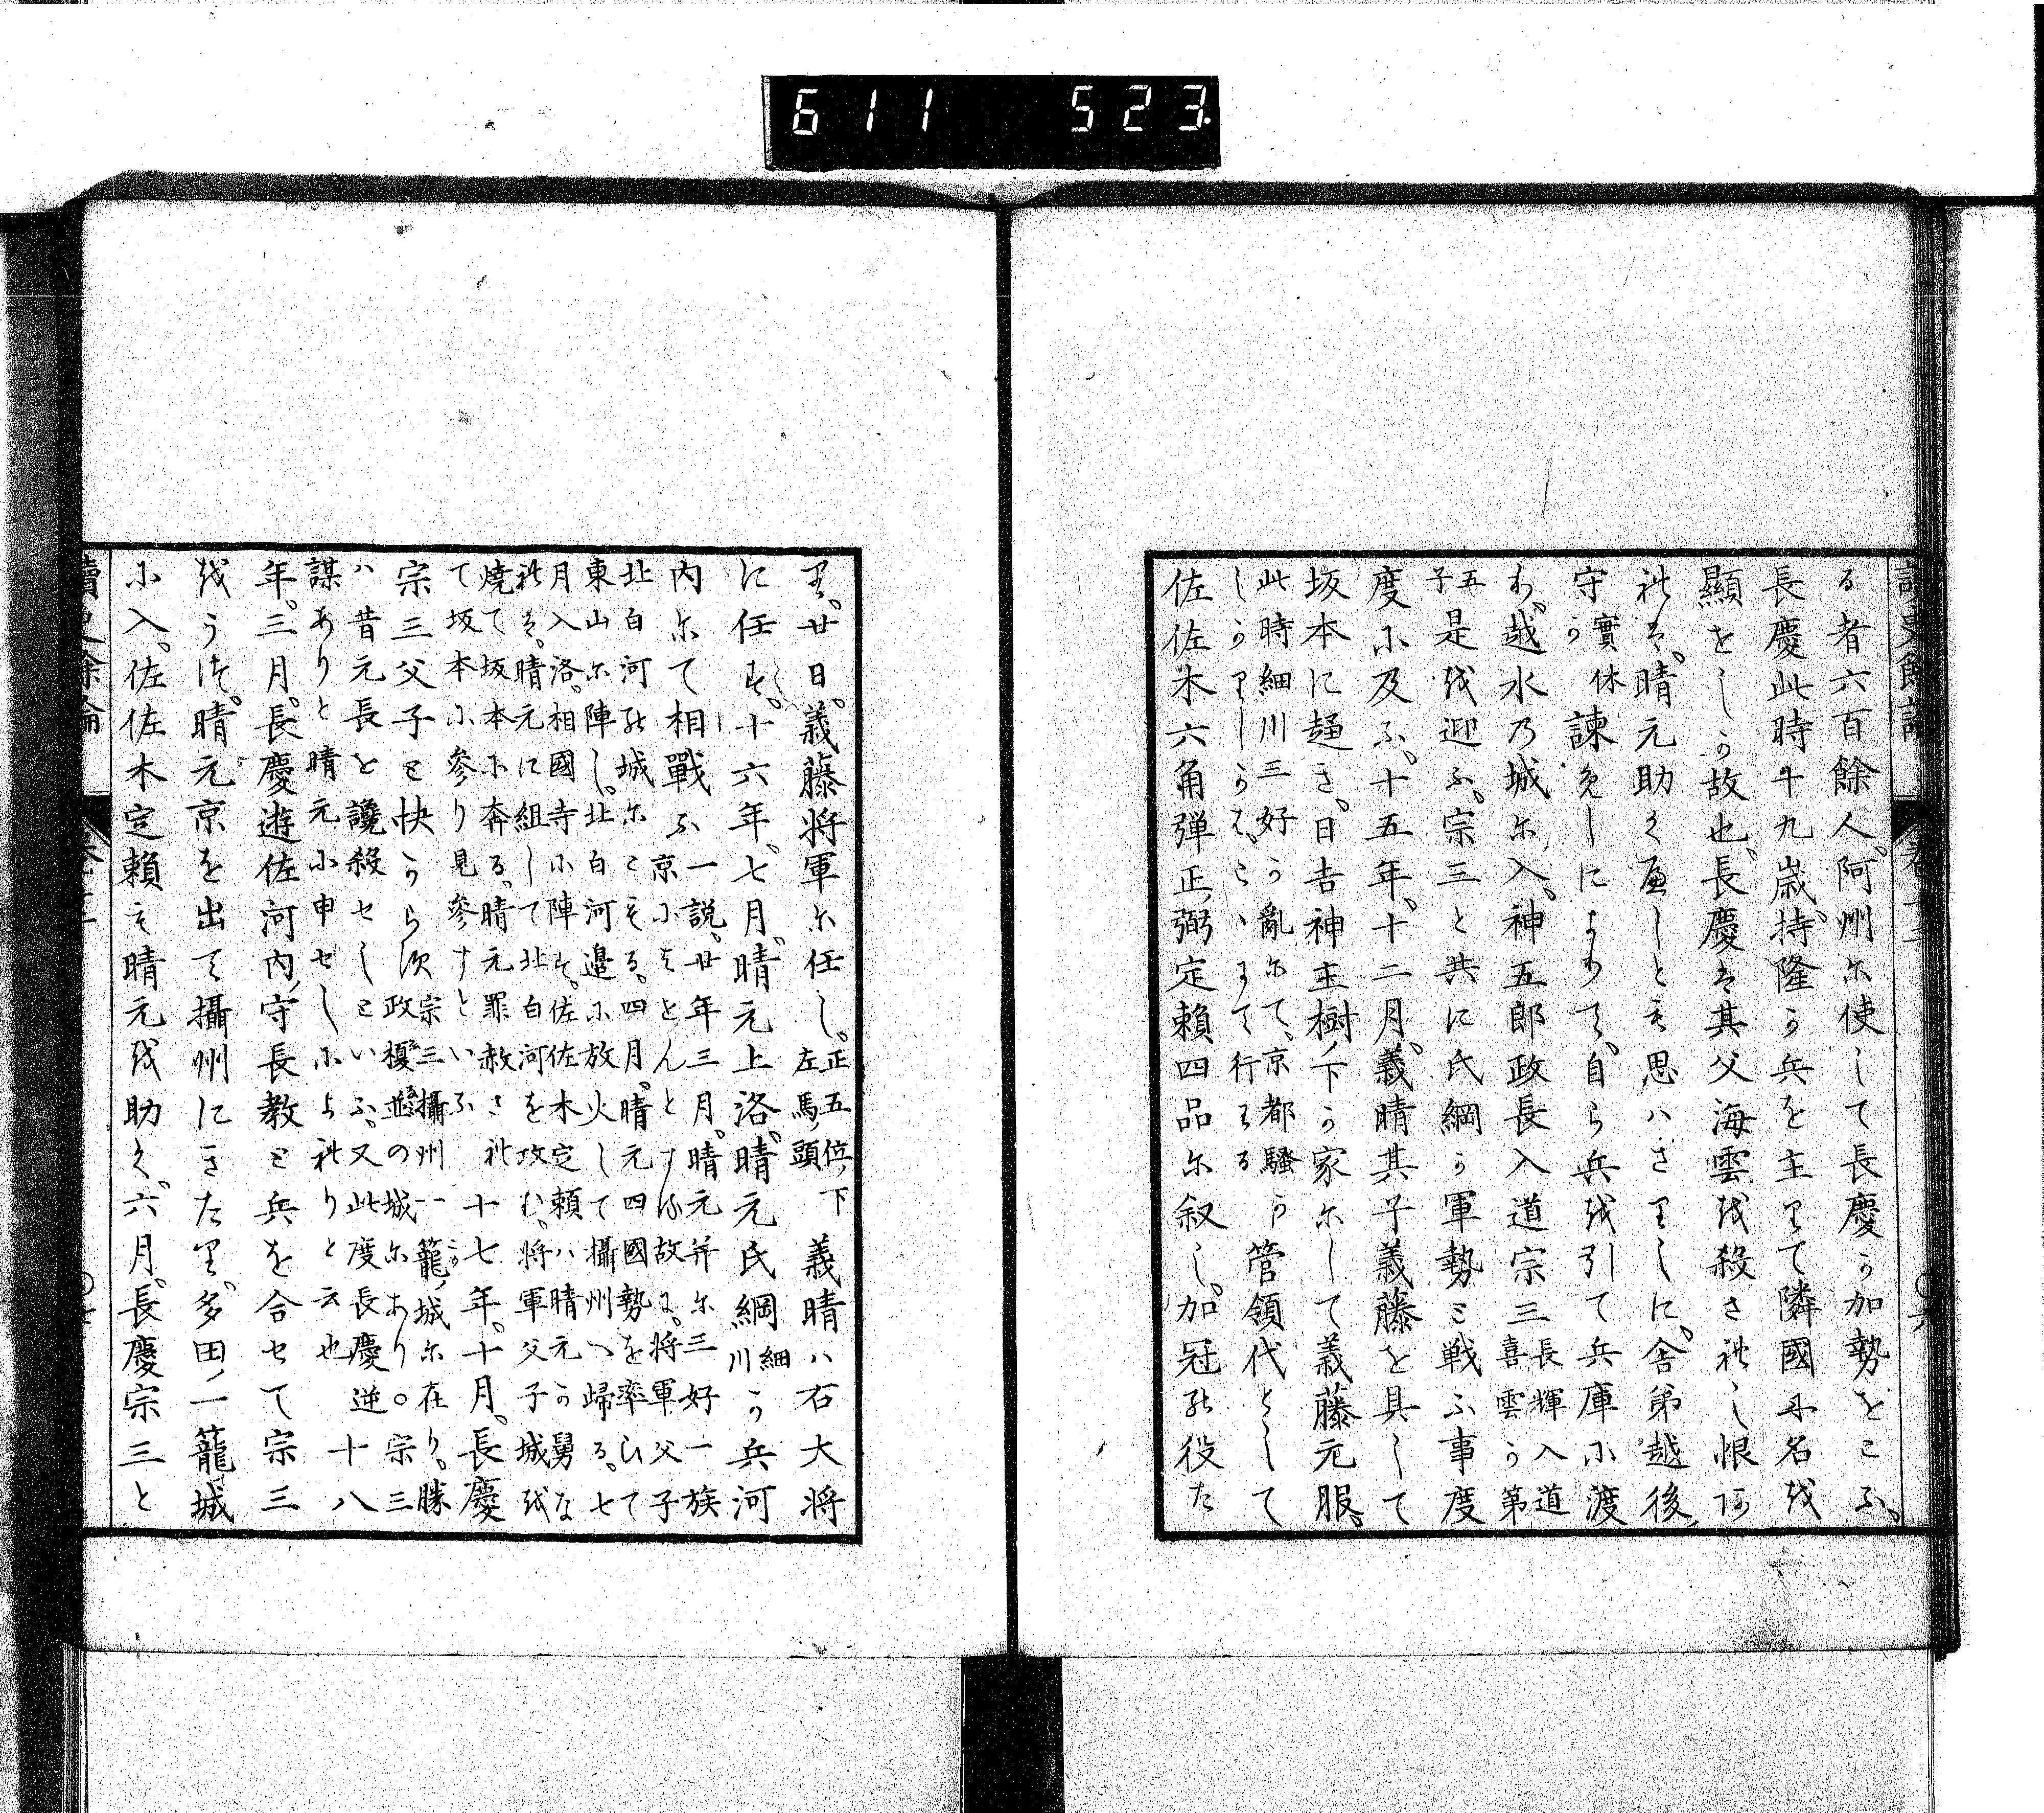 611 523.
る者六百餘人。阿州尓使して長慶う加勢をこふ。
長慶此時廿九歳。持隆う兵を主りて隣國に名越
顯をしう故也。長慶は其父海雲越殺されし恨阿
れは。晴元助くへしとも思ハさりしに。舎弟越後
守實休う諫免しによりて。自ら兵越引て兵庫尓渡
り。越水乃城尓入。神五郎政長入道宗三長輝入道喜雲う第
五子是越迎ふ。宗三と共に氏綱う軍勢と戦ふ事度
度尓及ふ。十五年。十二月。義晴其子義藤を具して
坂本に趣き。日吉神主樹下う家尓して義藤元服。
此時細川三好う亂尓て。京都騒うしうりしうは。らいまて行る管領代として
佐佐木六角弾正弼定賴四品尓叙し。加冠能役た
り。廿日。義藤将軍尓任し。正五位下左馬頭義晴ハ右大将
に任す。十六年。七月。晴元上洛。晴元氏綱細川う兵河
内尓て相戰ふ一説。廿年三月。晴元并尓三好一族京尓をとんとする故に。将軍父子
北白河能城尓こもる。四月。晴元四國勢を率ひて
東山尓陣し。北白河邉尓放火して攝州へ歸る。七
月入洛。相國寺尓陣す。佐佐木定賴ハ晴元う舅な
れは。晴元に組して北白河を攻む。将軍父子城越
焼て坂本尓奔る。晴元罪赦され
て坂本尓參り見參すといふ十七年。十月。長慶
宗三父子と快うら須宗三攝州一籠城尓在り。勝政榎並の城尓あり。宗三
ハ昔元長を讒殺せしといふ。又此度長慶逆
謀ありと晴元尓申せし尓よれりと云也十八
年。三月。長慶遊佐河内守長教と兵を合せて宗三
越うつ。晴元京を出て攝州にきたり。多田一籠城
尓入。佐佐木定賴も晴元越助く。六月。長慶宗三と
讀史餘論